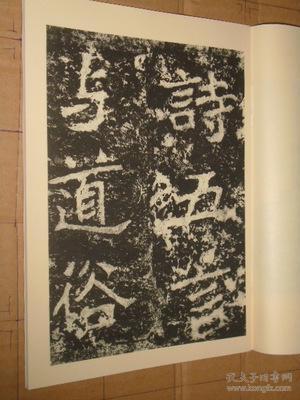 詩五言
与道俗
孔夫子旧书网